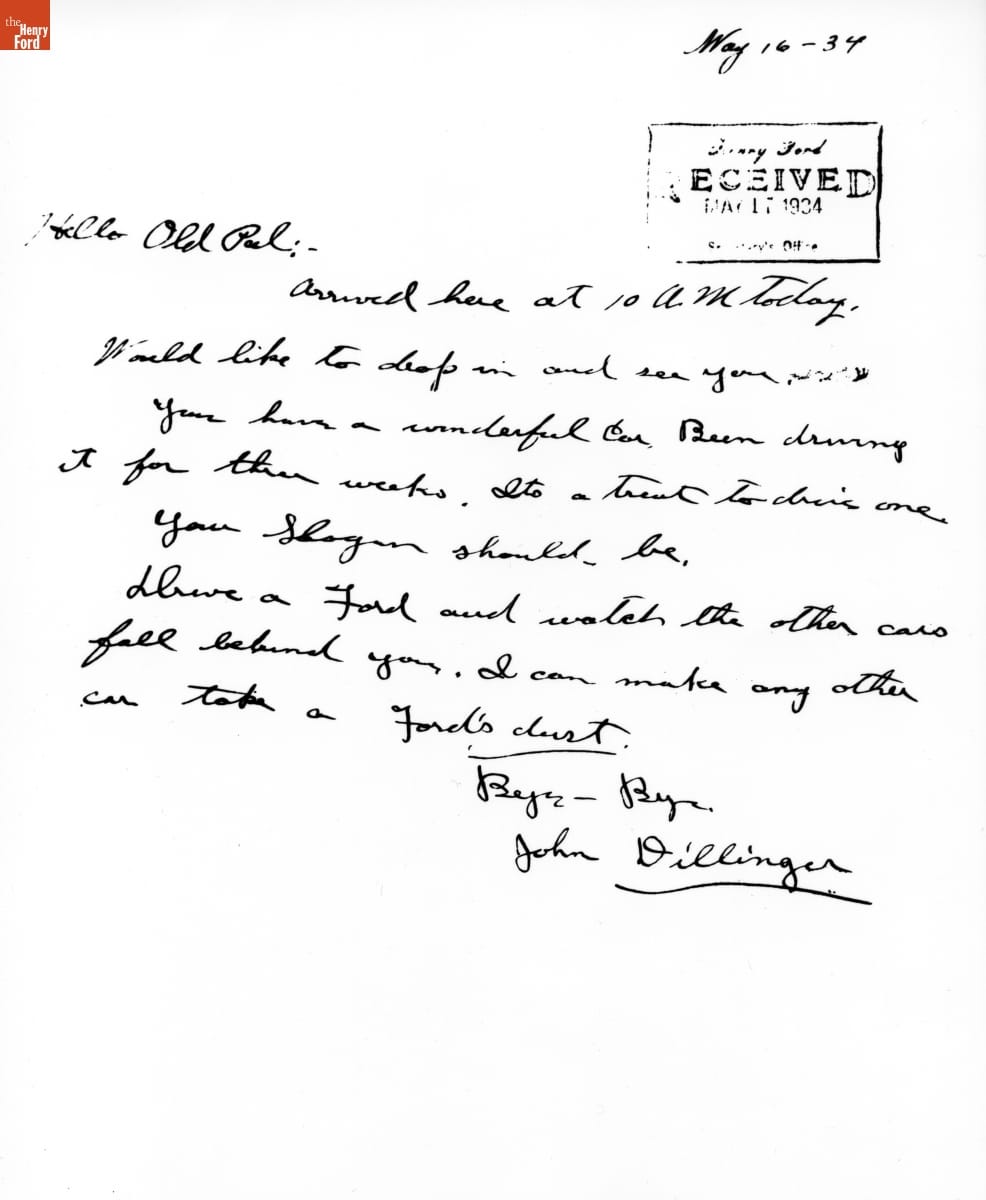 the
Henry
Ford
May 16-34
Henry Ford
RECEIVED
MAY 17 1934
Secretary's Office
Hello Old Pal:-
Arrived here at 10 A.M today.
Would like to drop in and see you
You have a wonderful Car. Been driving
it for three weeks. Its a treat to drive one.
Your Slogan should be.
Drive a Ford and watch the other cars
fall behind you. I can make any other
car take a Ford's dust.
Bye - Bye.
John Dillinger